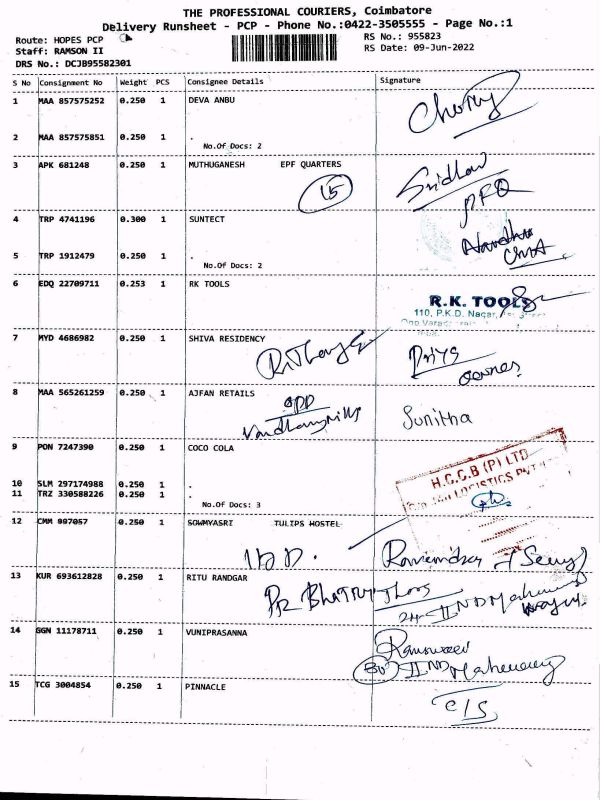 THE PROFESSIONAL COURIERS, Coimbatore
Delivery Runsheet - PCP - Phone No.:0422-3505555 - Page No.:1
Route: HOPES PCP
RS No.: 955823
Staff: RAMSON II
RS Date: 09-Jun-2022
DRS No.: DCJB95582301
S No Consignment No Weight PCS Consignee Details Signature
1 MAA 857575252 0.250 1 DEVA ANBU
2 MAA 857575851 0.250 1 .
No.Of Docs: 2
3 APK 681248 0.250 1 MUTHUGANESH EPF QUARTERS
15 Sridhar
4 TRP 4741196 0.300 1 SUNTECT
5 TRP 1912479 0.250 1 .
No.Of Docs: 2
6 EDQ 22709711 0.253 1 RK TOOLS
R.K. TOOLS
110, P.K.D. Nagar,
7 MYD 4686982 0.250 1 SHIVA RESIDENCY
Priya
8 MAA 565261259 0.250 1 AJFAN RETAILS
opp
Sunitha
9 PON 7247390 0.250 1 COCO COLA
H.C.C.B (P) LTD
10 SLM 297174988 0.250 1 .
LOGISTICS PVT
11 TRZ 330588226 0.250 1 .
No.Of Docs: 3
12 CMM 997057 0.250 1 SOWMYASRI TULIPS HOSTEL
13 KUR 693612828 0.250 1 RITU RANDGAR
24-II ND
14 GGN 11178711 0.250 1 VUNIPRASANNA
II ND
15 TCG 3004854 0.250 1 PINNACLE
C/S